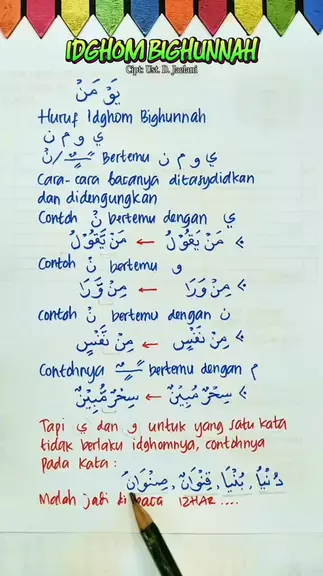 IDGHOM BIGHUNNAH
Cipt: Ust. D. Jaelani
يَوْ مَنْ
Huruf Idghom Bighunnah
ي و م ن
نْ/ ـًـٍـٌ Bertemu ي و م ن
Cara-cara bacanya ditasydidkan
dan didengungkan
Contoh نْ bertemu dengan ي
مَنْ يَقُوْلُ ← مَنْ يَّقُوْلُ
Contoh نْ bertemu و
مِنْ وَرَا ← مِنْ وَّرَا
Contoh نْ bertemu dengan ن
مِنْ نَفْسٍ ← مِنْ نَّفْسٍ
Contohnya ـًـٍـٌ bertemu dengan م
سِحْرٌ مُبِيْنٌ ← سِحْرٌ مُّبِيْنٌ
Tapi ي dan و untuk yang satu kata
tidak berlaku idghomnya, contohnya
pada kata :
دُنْيَا, بُنْيَا, قِنْوَانٌ, صِنْوَانٌ
Malah jadi di baca IZHAR ....